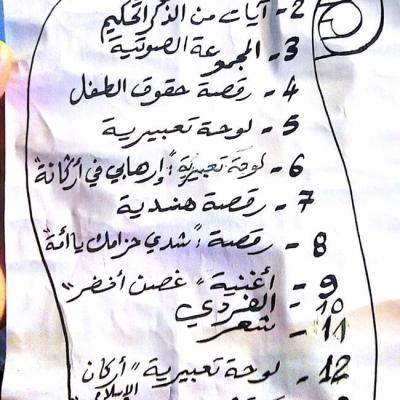 2- آيات من الذكر الحكيم
3- المجموعة الصوتية
4- رقصة حقوق الطفل
5- لوحة تعبيرية
6- لوحة تعبيرية "إرهابي في أركانة"
7- رقصة هندية
8- رقصة "شدي حزامك ياأمة"
9- أغنية "غصن أخضر"
10- الفردي
11- شعر
12- لوحة تعبيرية "أركان الإسلام"